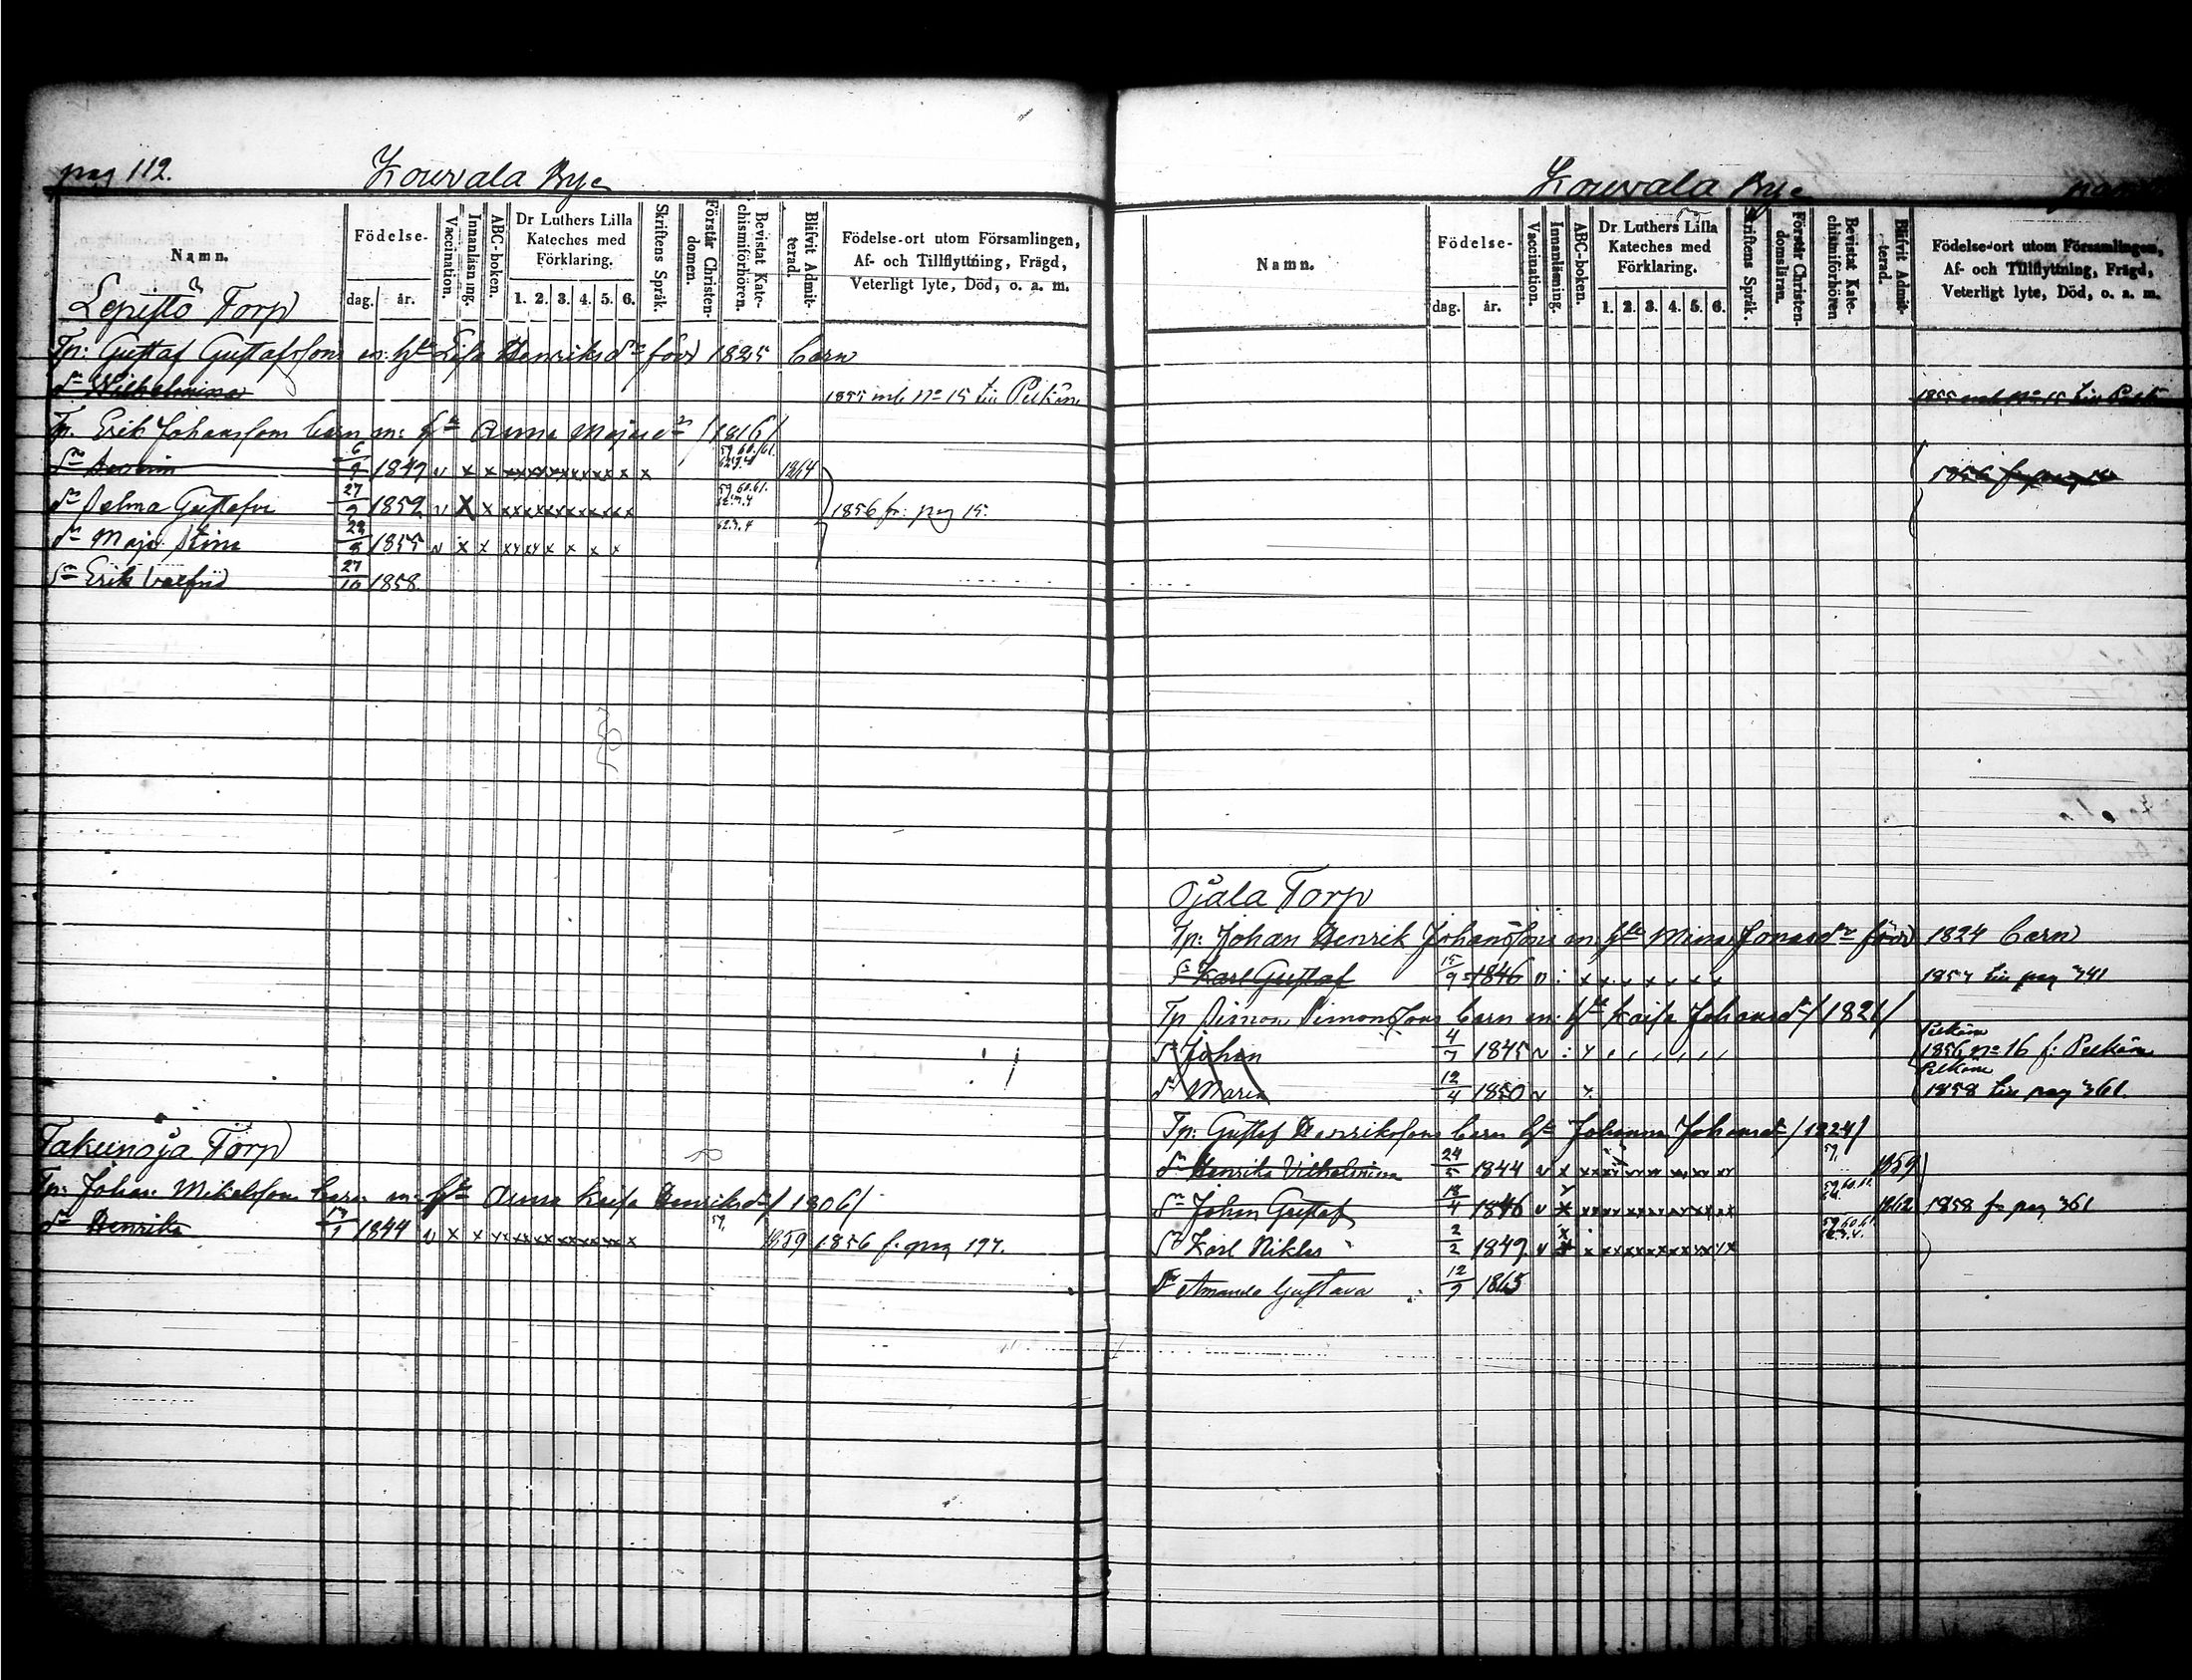 pag 112. Kouvala Bye
Namn. Födelse- dag. år. Vaccination. Innanläsning. ABC-boken. Dr Luthers Lilla Kateches med Förklaring. 1. 2. 3. 4. 5. 6. Skriftens Språk. Förstår Christendomen. Bevistat Katechismiförhören. Blifvit Admitterad. Födelse-ort utom Församlingen, Af- och Tillflyttning, Frägd, Veterligt lyte, Död, o. a. m.
Torp
Tp: Gustaf Gustafssons m: hstr Lisa Henriksdr född 1825 barn
dr Wilhelmina 1855 mb No 15 till Pelkäne
Tp. Erik Johansson barn m: hstr Anna Majasdr /1816/
6/9 1849 v x x xx xx xx xx x x x 59.60.61. 62.3.4 1864
dr Selma Gustafva 27/9 1852 v x x xx xx xx xx x x 59 60.61. 62.3.4 1856 fr: pag 15.
dr Maja Stina 28/8 1855 v x x xx xx x x x x 62.3.4
sn Erik Valfrid 27/10 1858.
Takunoja Torp
Tp: Johan Mikelsson barn m: hstr Anna Kaisa Henriksdr / 1806/
dr Henrika 1844 v x x xx xx xx xx xx x 59. 1859 1856 f. pag 197.
Kouvala Bye
Namn. Födelse- dag. år. Vaccination. Innanläsning. ABC-boken. Dr. Luthers Lilla Kateches med Förklaring. 1. 2. 3. 4. 5. 6. Skriftens Språk. Förstår Christendomsläran. Bevistat Katechismiförhören Blifvit Admitterad. Födelse-ort utom Församlingen, Af- och Tillflyttning, Frägd, Veterligt lyte, Död, o. a. m.
1855 mb No 15 till
1856
Ojala Torp
Tp: Johan Henrik Johanssons m: hstr Mina Jonasdr född 1824 barn
s: Karl Gustaf 15/9 1846 1857 till pag 341
Tp Simon Simonssons barn m: hstr Kaisa Johansdr /1821/
sn Johan 4/7 1845 v Pelkäne 1856 No 16 f: Pelkäne
dr Maria 12/4 1850 v Pelkäne 1858 till pag 361.
Tp: Gustaf Henrikssons barn hstr Johanna Johansdr /1824/
dr Henrika Vilhelmina 24/5 1844 v x xx xx xx xx xx xx 59. 1859
sn Johan Gustaf 18/4 1846 v x 1862 1858 fr pag 361
sn Karl Niklas 2/2 1849 v x x 59 60.61 62.3.4.
dr Amanda Gustava 12/9 1865